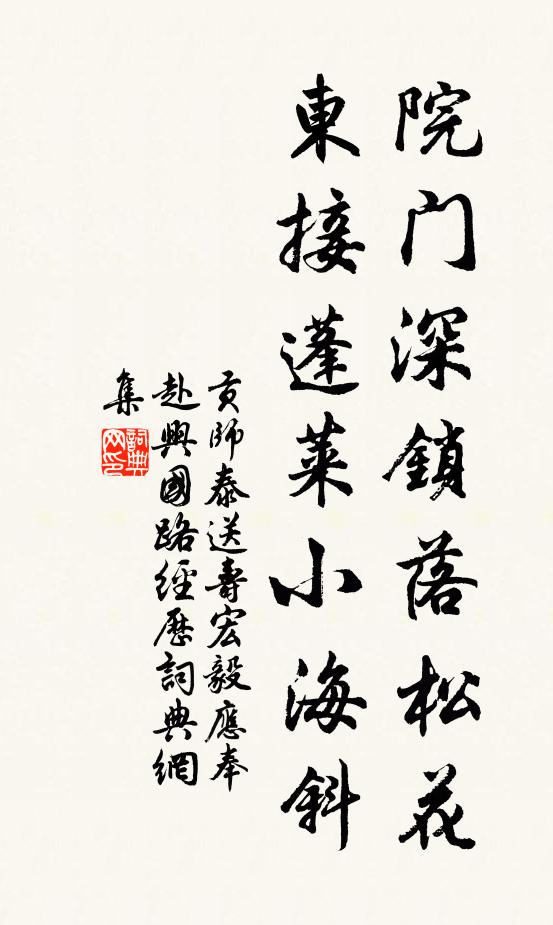 院门深鎖落松花
東接蓬萊小海斜
贡師泰送壽宏毅應奉
赴興國路經歷詞典網
集
詞典网印